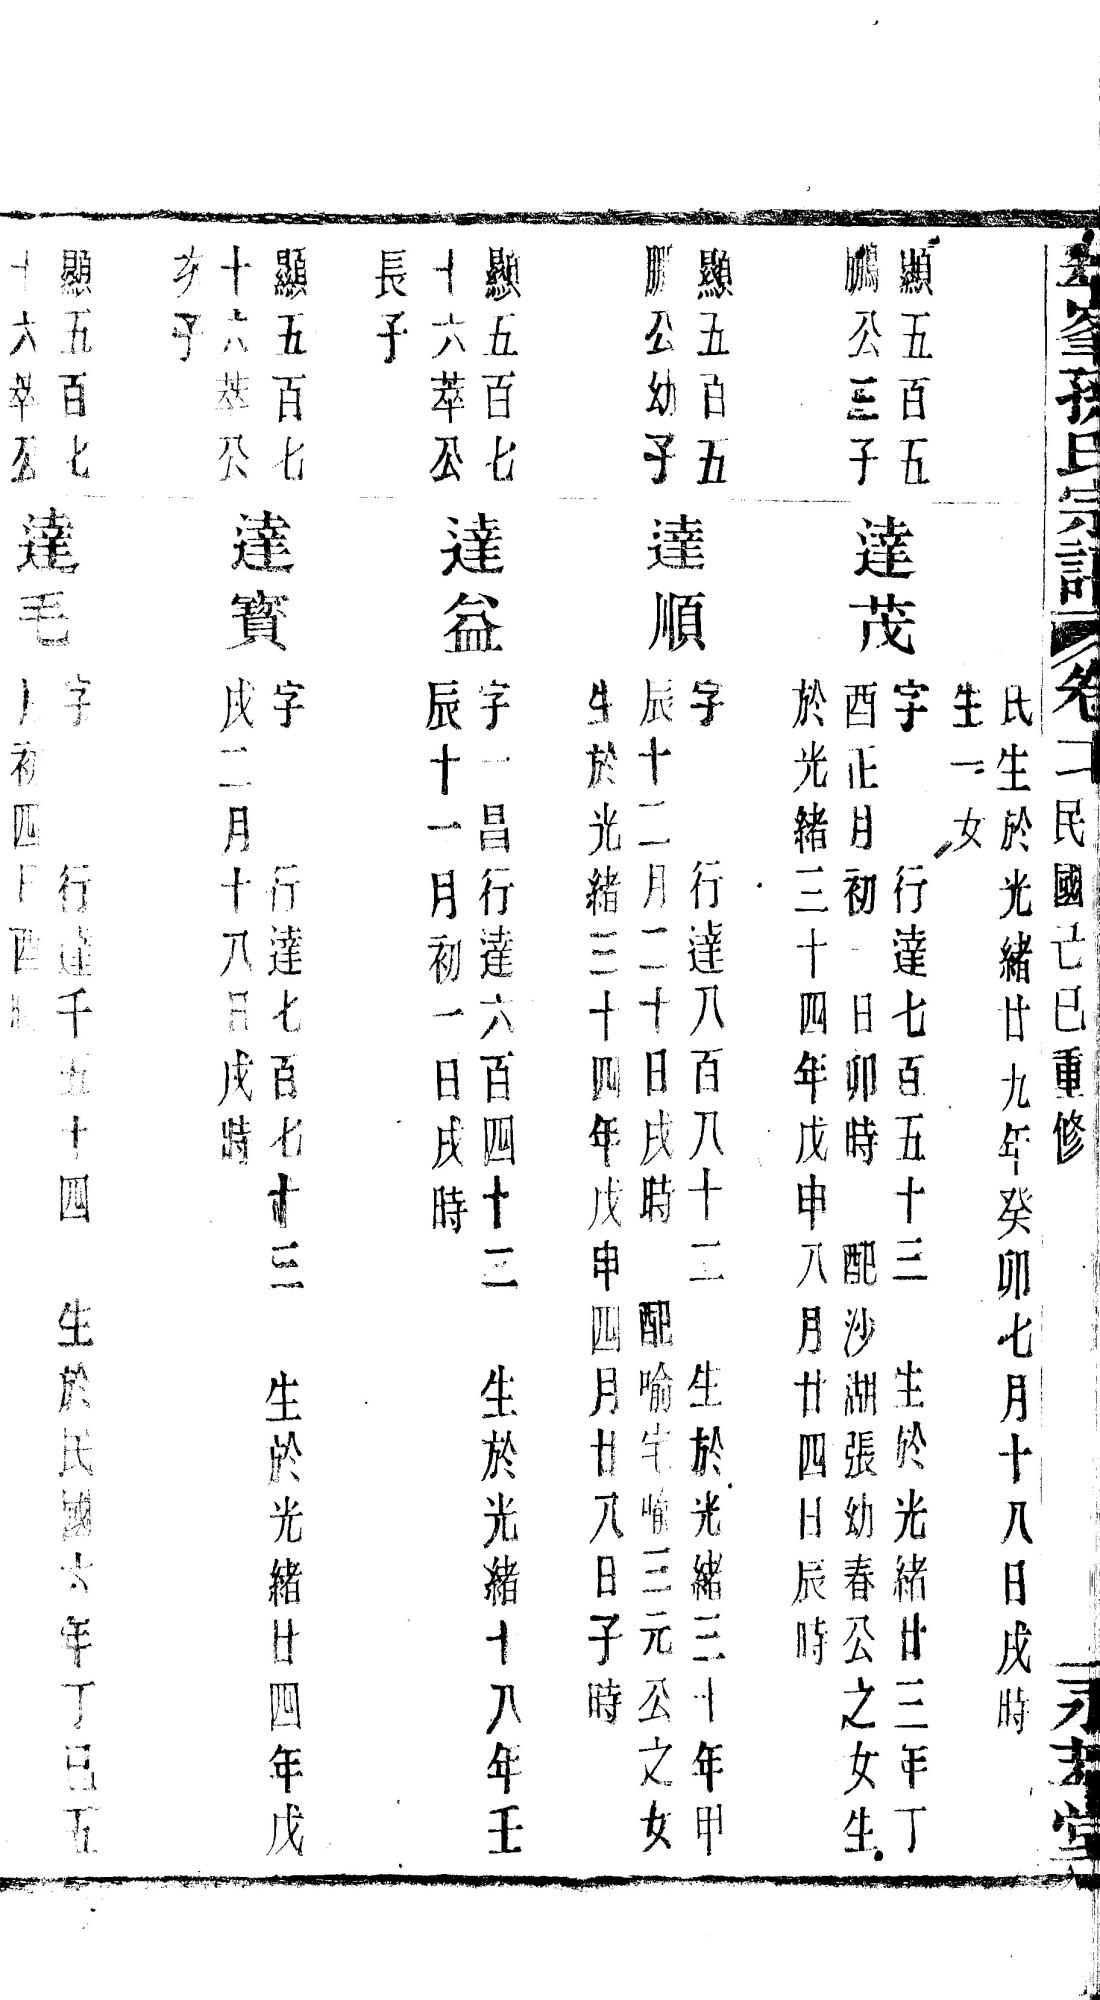 孫氏宗譜
卷十二
民國己巳重修
堂
氏生於光緒廿九年癸卯七月十八日戌時
生一女
顯五百五
鵬公三子
達茂
字 行達七百五十三 生於光緒廿三年丁
酉正月初一日卯時 配沙湖張幼春公之女生
於光緒三十四年戊申八月廿四日辰時
顯五百五
鵬公幼子
達順
字 行達八百八十二 生於光緒三十年甲
辰十二月二十日戌時 配喻宅喻三元公之女
生於光緒三十四年戊申四月廿八日子時
顯五百七
十六萃公
長子
達益
字一昌行達六百四十三 生於光緒十八年壬
辰十一月初一日戌時
顯五百七
十六萃公
次子
達寶
字 行達七百七十三 生於光緒廿四年戊
戌二月十八日戌時
顯五百七
十六萃公
達毛
字 行達千五十四 生於民國六年丁巳五
月初四日酉時